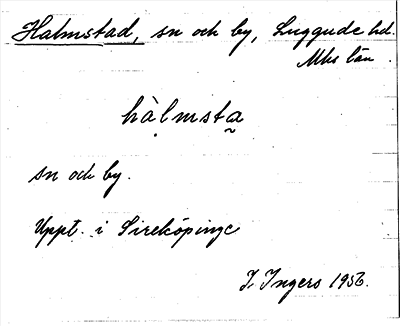 Halmstad, sn och by, Luggude hd.
Mhs län.
hàlmsta̰
sn och by.
Uppt. i Sireköpinge
I. Ingers 1956.